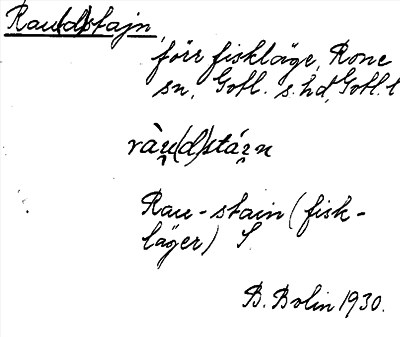 Rau(d)stajn,
förr fiskläge, Rone
sn, Gotl. s. hd, Gotl. l
ràu̯(d)stái̯n
Rau-stain (fisk-
läger) S.
B. Bolin 1930.